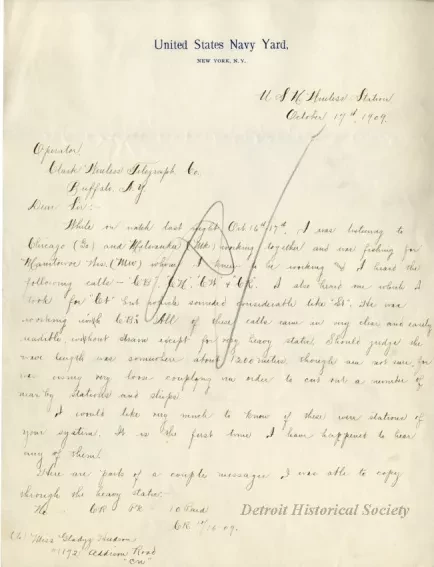 United States Navy Yard,
NEW YORK, N.Y.
U S N Wireless Station
October 17th, 1909.
Operator
Clark Wireless Telegraph Co.
Buffalo, N.Y.
Dear Sir:-
While on watch last night Oct 16th 17th, I was listening to
Chicago (Go) and Milwaukee (Mk) working together and was feeling for
Manitowoc Wis. (Mw) whom I knew to be working & I heard the
following calls - "CB", "CK", "CW" & CR. I also heard one which I
took for "Ct" but which sounded considerable like "St". He was
working with CB. All of these calls came in very clear and easily
readable without strain except for very heavy static. Should judge the
wave length was somewhere about 1200 meters though am not sure, for
was using very loose coupling in order to cut out a number of
near by stations and ships.
I would like very much to know if these were stations of
your system. It is the first time I have happened to hear
any of them.
Here are parts of a couple messages I was able to copy
through the heavy static.
No CR 10 Paid
CR 10/16-09.
Miss Gladys Hudson
1192 Addison Road
"CW"
Detroit Historical Society